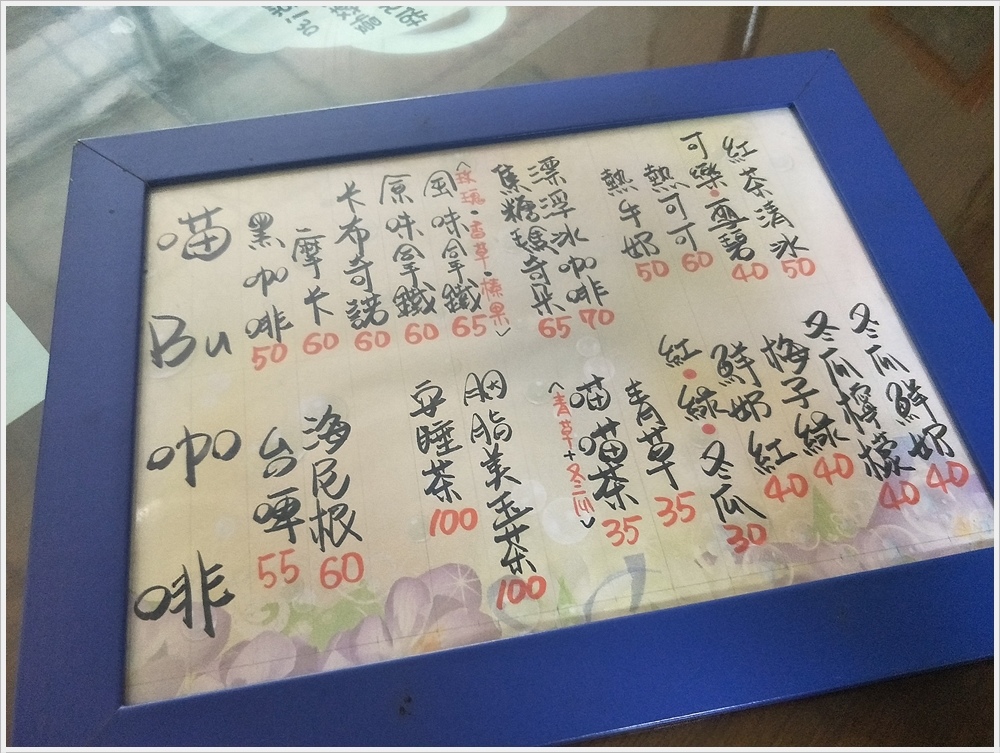 喵Bu咖啡
黑咖啡 50
摩卡 60
卡布奇諾 60
原味拿鐵 60
風味拿鐵 65
〈玫瑰・香草・榛果〉
焦糖瑪奇朵 65
漂浮冰咖啡 70
熱牛奶 50
熱可可 60
可樂・雪碧 40
紅茶清冰 50
台啤 55
海尼根 60
安睡茶 100
胭脂美玉茶 100
〈青草+冬瓜〉
喵喵茶 35
青草 35
紅・綠・冬瓜 30
鮮奶紅 40
梅子綠 40
冬瓜檸檬 40
冬瓜鮮奶 40